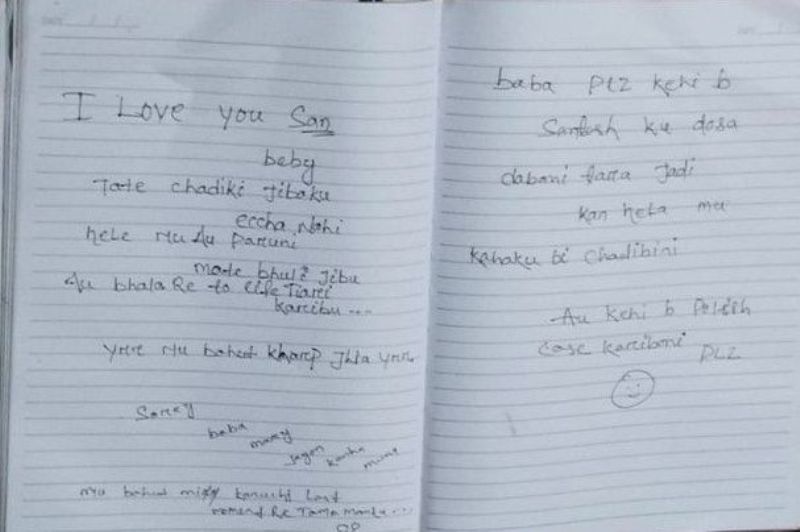 I Love you San
beby
Tate chadiki Jibaku
eccha Nahi
hele Mu Au Paruni
mate bhuli Jibu
Au bhala Re to life Tiarei
karibu ...
Mu bahut kharap
Sorry
baba
mamy
Jagan
kanha
muna
Mu bahut miss karuchi Last
moment Re Tama
baba PLZ kehi b
Santosh ku dosa
dabani tara Jadi
kan hela mu
kahaku bi chadibini
Au kehi b Polish
case karibani PLZ